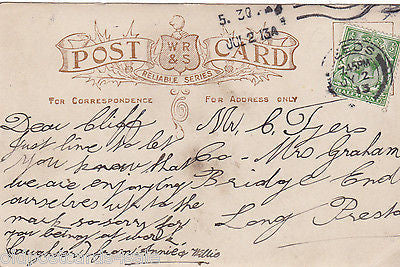 5. 20
JUL 2 13
POST CARD
W.R.
& S.
RELIABLE SERIES
FOR CORRESPONDENCE
FOR ADDRESS ONLY
LEEDS
13
Dear Cliff
Just line to let
you know that
we are enjoying
ourselves up to the
mark so sorry for
you being at work
Laughing from Annie & Willie
Mr C. Tyers
Co- Mrs Graham
Bridge End
Long Preston